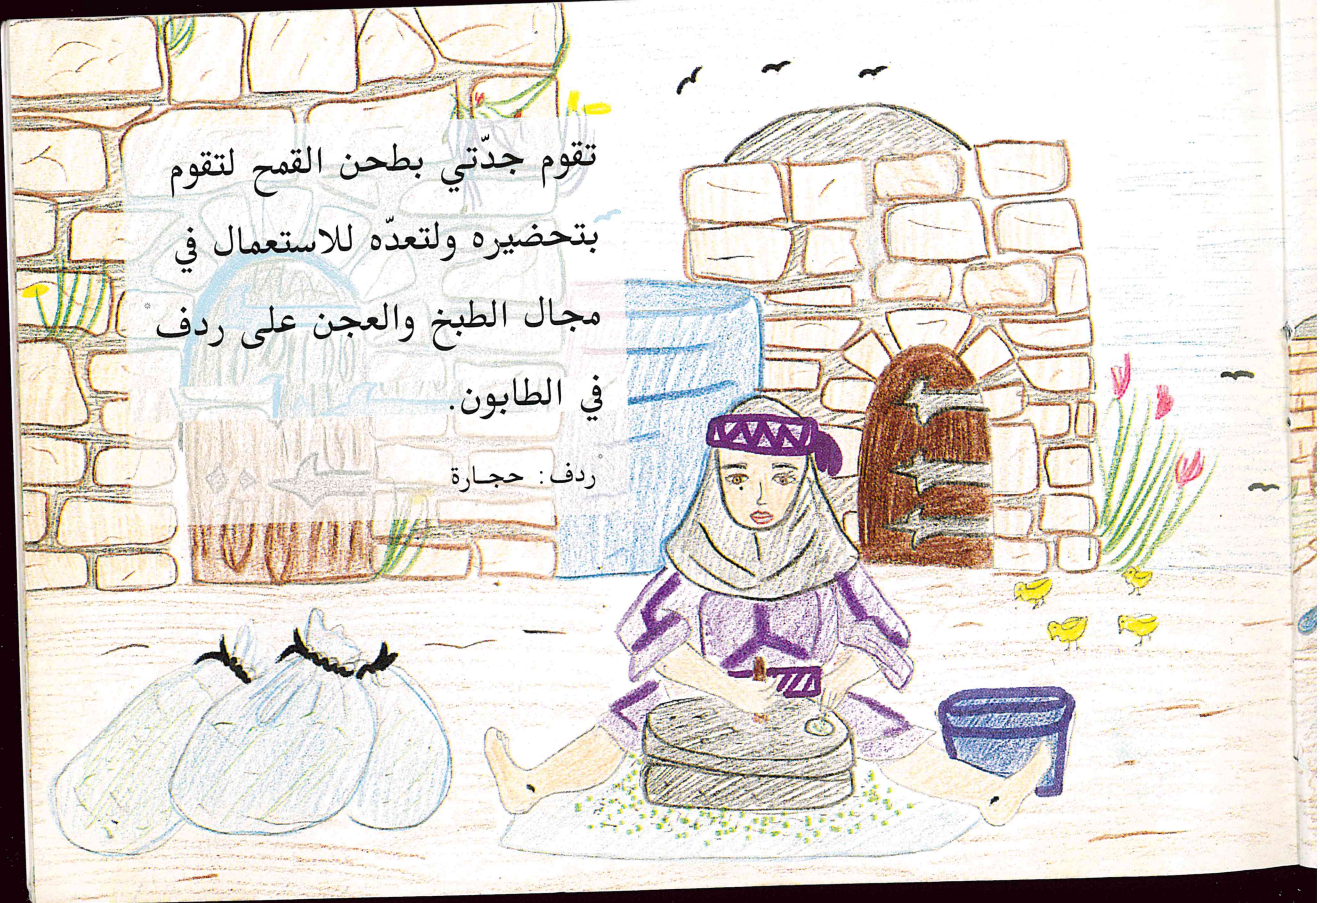 تقوم جدّتي بطحن القمح لتقوم
بتحضيره ولتعدّه للاستعمال في
مجال الطبخ والعجن على ردف*
في الطابون.
*ردف: حجارة